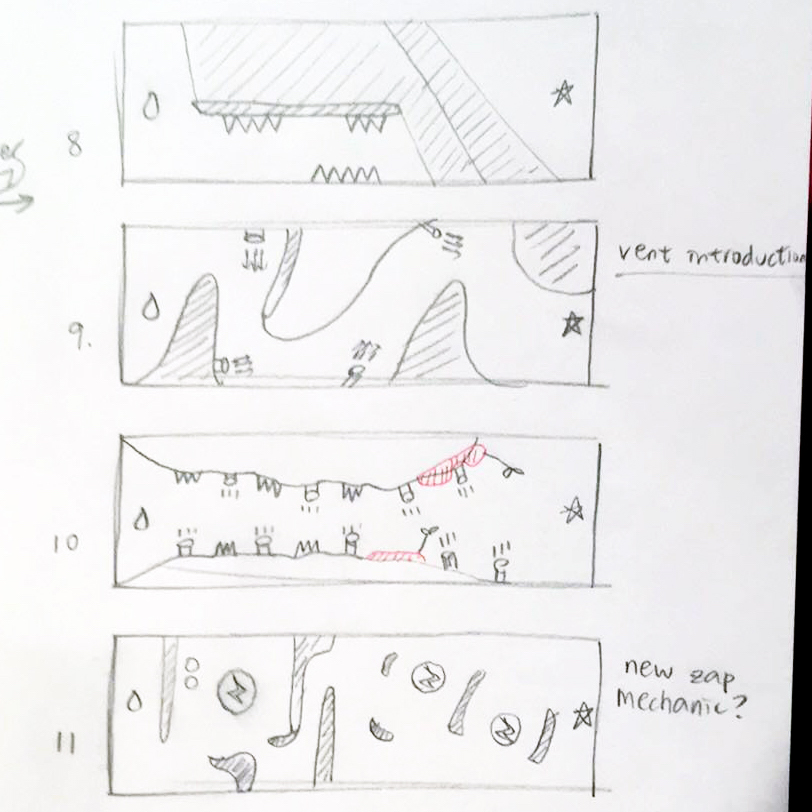 8
9.
vent introduction
10
11
new zap
mechanic?